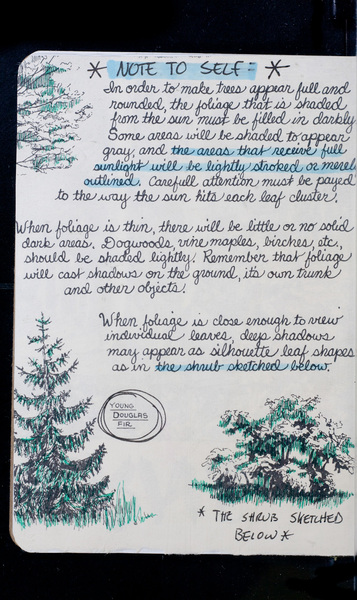 * NOTE TO SELF: *
In order to make trees appear full and
rounded, the foliage that is shaded
from the sun must be filled in darkly.
Some areas will be shaded to appear
gray, and the areas that receive full
sunlight will be lightly stroked or merely
outlined. Carefull attention must be payed
to the way the sun hits each leaf cluster.
When foliage is thin, there will be little or no solid
dark areas. Dogwoods, vine maples, birches, etc,
should be shaded lightly. Remember that foliage
will cast shadows on the ground, its own trunk
and other objects!
When foliage is close enough to view
individual leaves, deep shadows
may appear as silhouette leaf shapes
as in the shrub sketched below.
YOUNG
DOUGLAS
FIR
* THE SHRUB SKETCHED
BELOW *